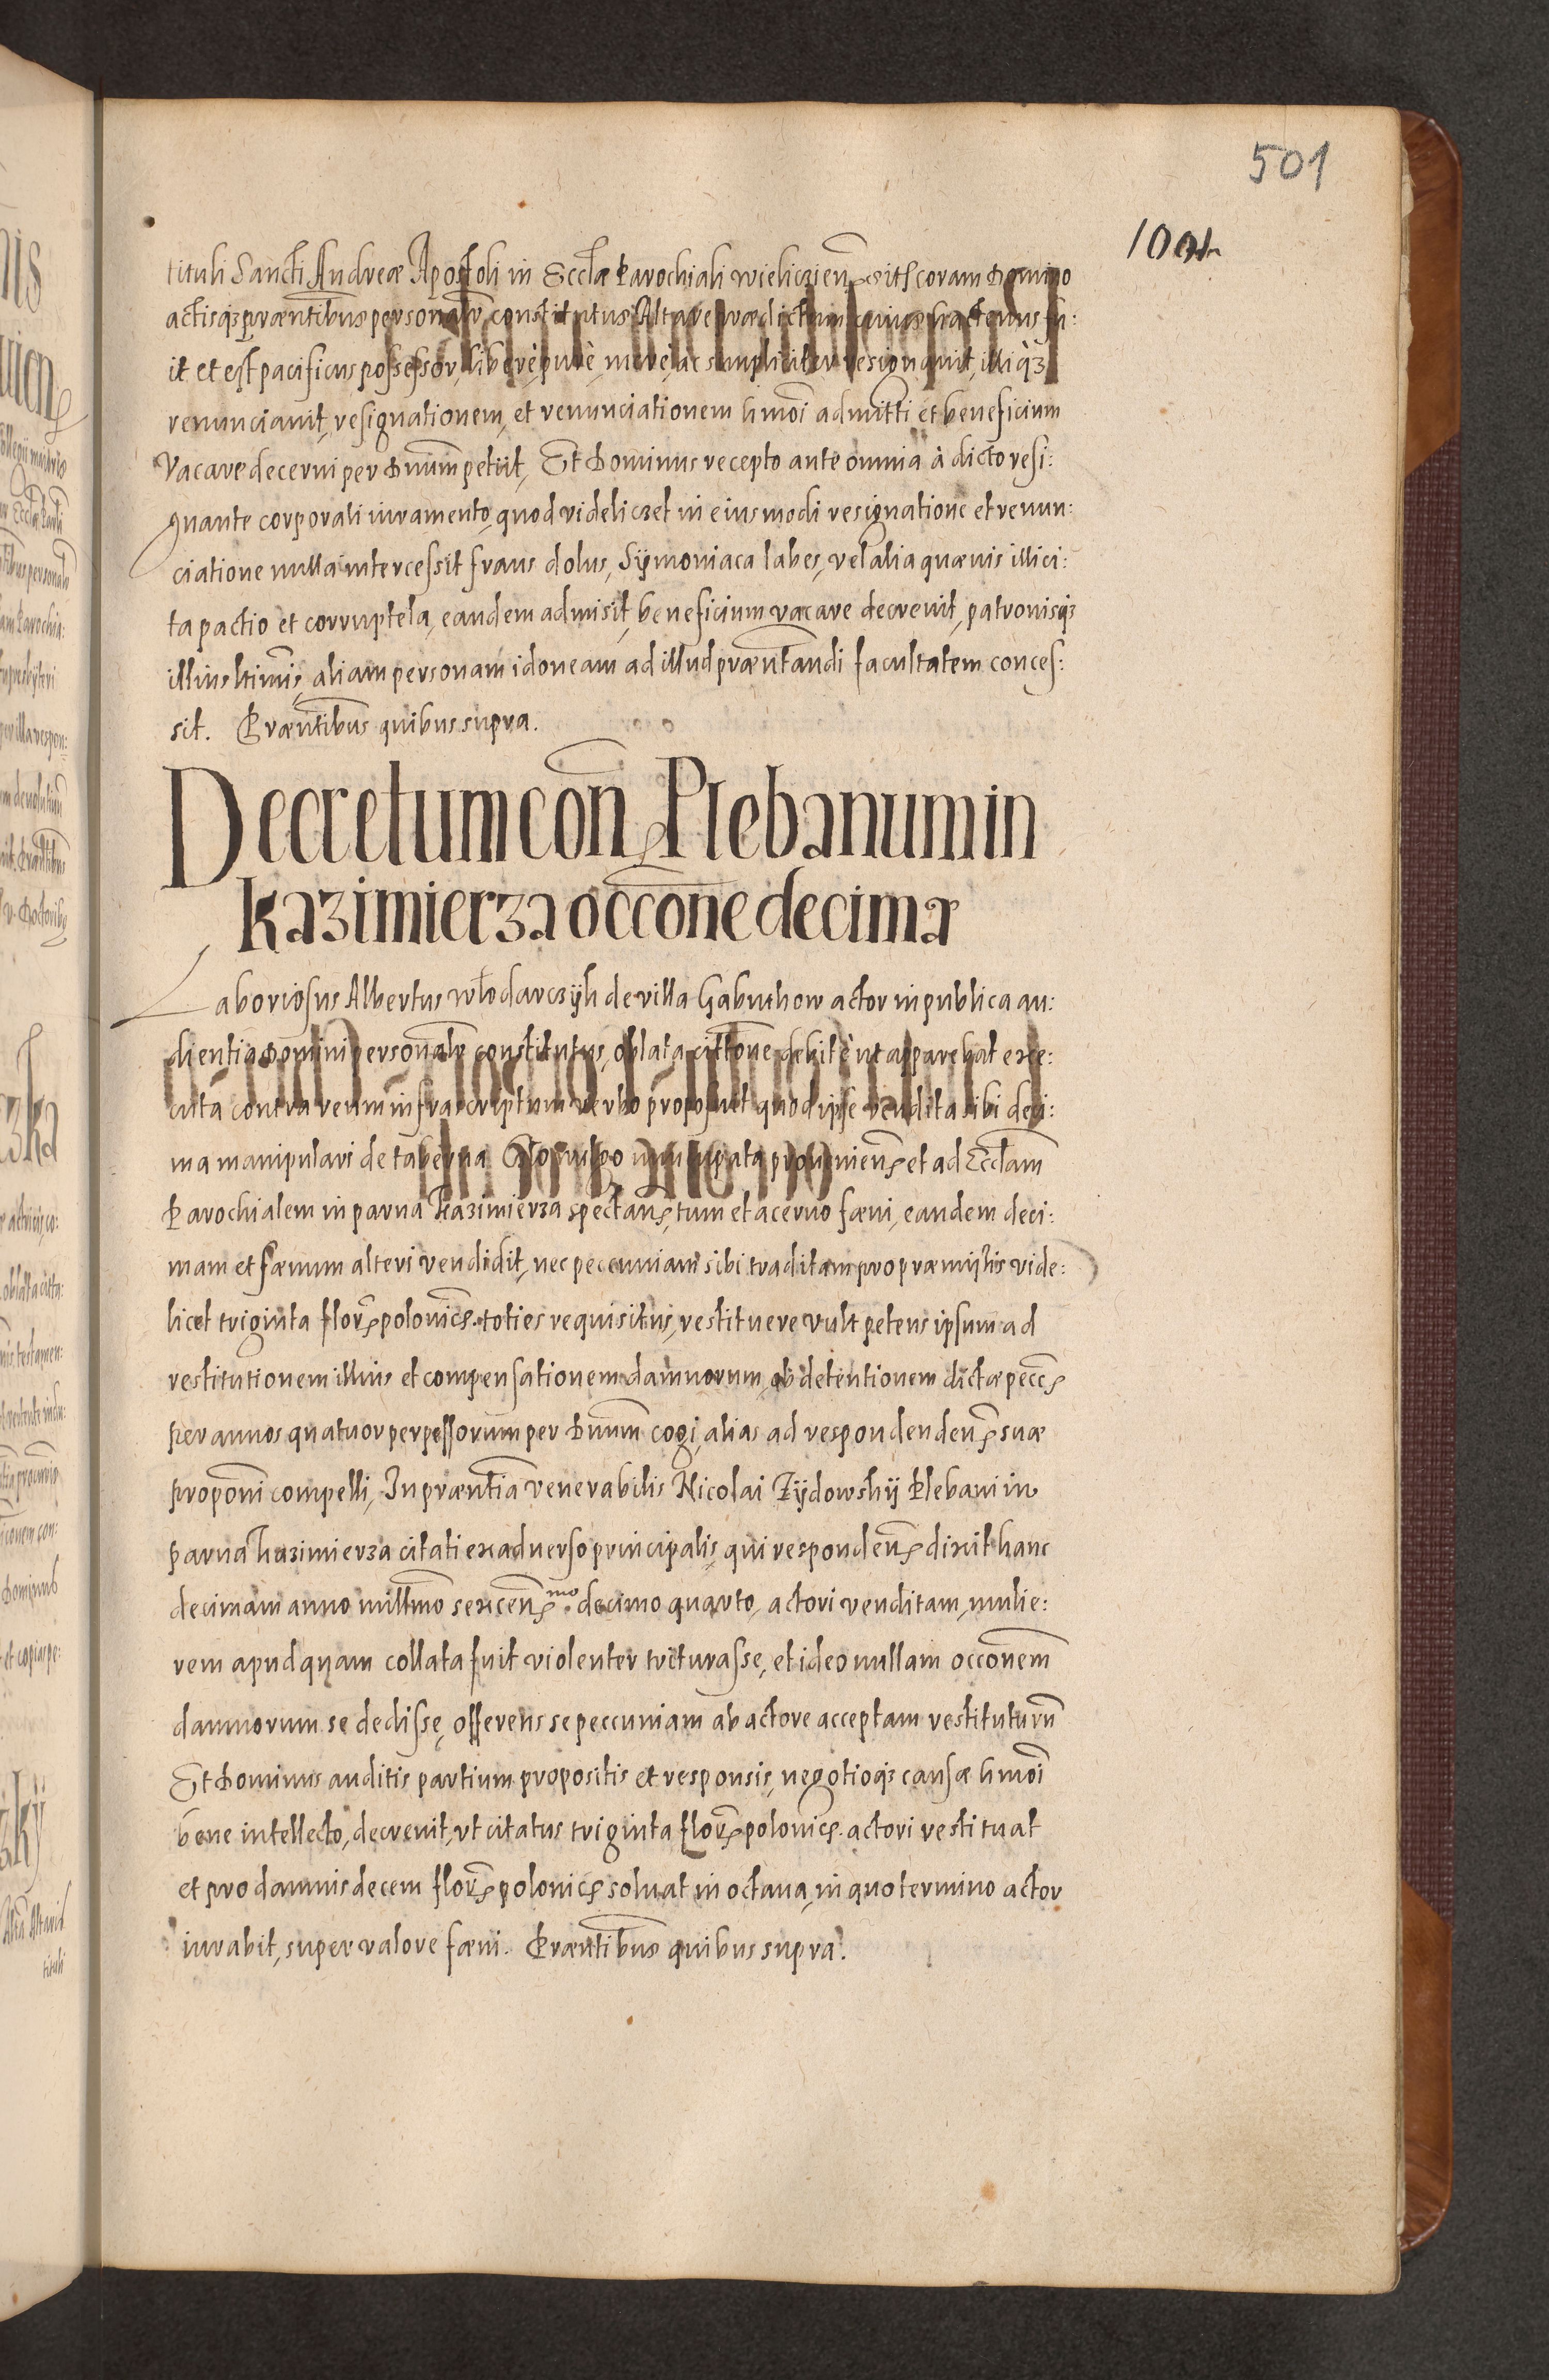 501
tituli Sancti Andreæ Apostoli in Ecclæ Parochiali wielicziens̃ coram Domino
actisq₃ præntibus personalr̃ constitutus Altare prædictum cuius hactenus fu:
it et est pacificus possessor, liberè, purè, merè, ac simpliciter resignauit, illiq₃
renunciauit, resignationem, et renunciationem hmoi admitti et beneficium
Vacare decerni per Dnum petiit, Et Dominus recepto ante omnia à dicto resi:
gnante corporali iuramento, quod videliczet in eiusmodi resignatione et renun:
ciatione nulla intercessit fraus dolus, Sÿmoniaca labes, vel alia quæuis illici:
ta pactio et corruptela, eandem admisit, beneficium vacare decreuit, patronisq₃
illius ltimis, aliam personam idoneam ad illud præntandi facultatem conces:
sit. Præntibus quibus supra.
Decretum con̄ Plebanum in
Kazimierza occōne decimæ
Laboriosus Albertus włodarczÿk de villa Gabuthow actor in publica au:
dientia Domini personalr̃ constitutus, oblata cittōne debitè ut apparebat exe:
cuta contra reum infrascriptum verbo proposuit quod ipse vendita sibi deci:
ma manipulari de taberna nuncupata prouenien̄ et ad Ecclam
Parochialem in parua Kazimierza spectan̄, tum et aceruo fœni, eandem deci:
mam et fœnum alteri vendidit, nec peccuniam sibi traditam pro præmissis vide:
licet triginta flor̄ polonic̄. toties requisitus, restituere vult petens ipsum ad
restitutionem illius et compensationem damnorum, ob detentionem dictæ pecc̄
per annos quatuor perpessorum per Dnum cogi, alias ad respondenden̄ suæ
proponi compelli, In præntia venerabilis Nicolai Zÿdowskÿ Plebani in
parua Kazimierza citati ex aduerso principalis, qui responden̄ dixit hanc
decimam anno millmo sexcen̄.mo decimo quarto, actori venditam, mulie:
rem apud quam collata fuit violenter triturasse, et ideo nullam occonem
damnorum se dedisse, offerens se peccuniam ab actore acceptam restituturū
Et Dominus auditis partium propositis et responsis, negotioq₃ causæ hmoi
bene intellecto, decreuit, vt citatus triginta flor̄ polonic̄. actori restituat
et pro damnis decem flor̄ polonic̄ soluat in octaua, in quo termino actor
iurabit, super valore fœni. Præntibus quibus supra.